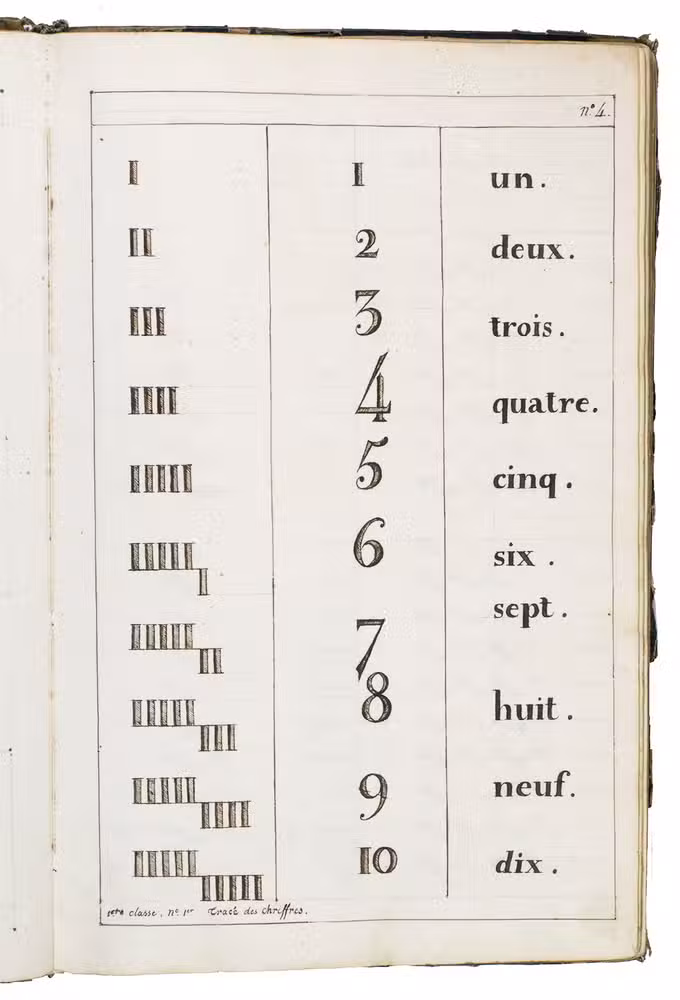 nº 4.
I 1 un.
II 2 deux.
III 3 trois.
IIII 4 quatre.
IIIII 5 cinq.
IIIII I 6 six.
IIIII II 7 sept.
IIIII III 8 huit.
IIIII IIII 9 neuf.
IIIII IIIII 10 dix.
1ère classe, nº 1er Tracé des chiffres.